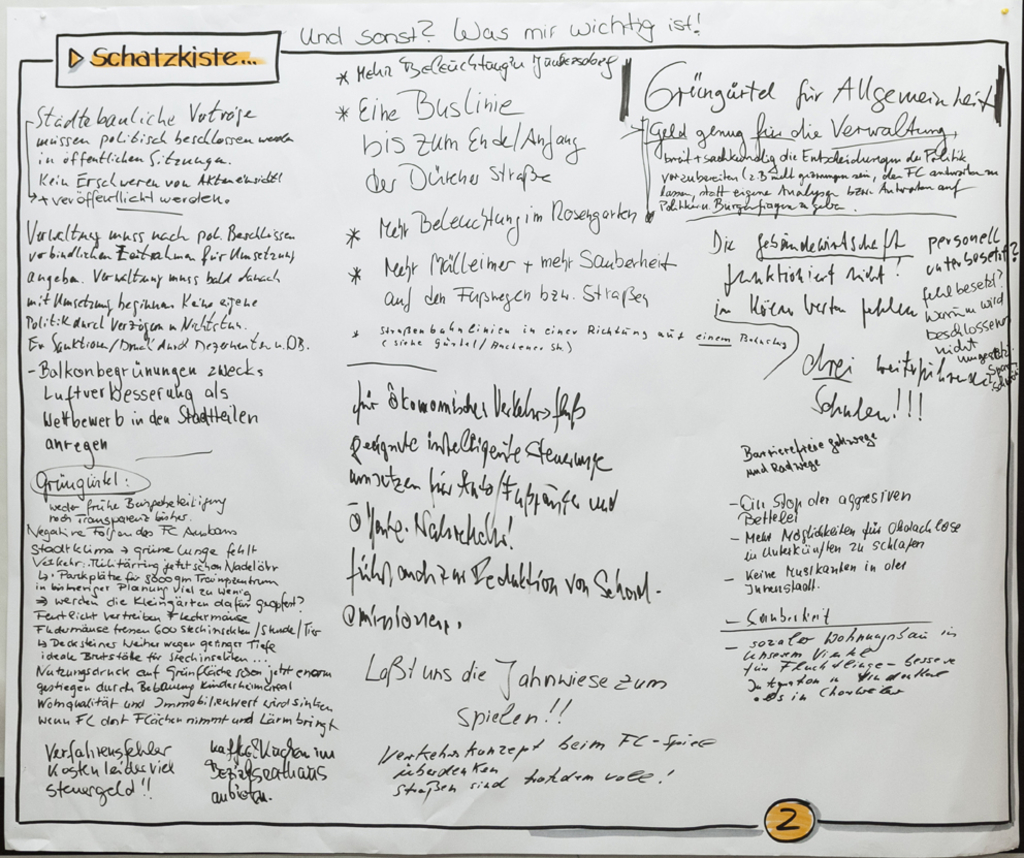 Schatzkiste...
Und sonst? Was mir wichtig ist!
Städtebauliche Verträge
müssen politisch beschlossen werden
in öffentlichen Sitzungen.
Kein Erschweren von Akteneinsicht
+ veröffentlicht werden.
Verwaltung muss nach pol. Beschlüssen
verbindlichen Zeitrahmen für Umsetzung
angeben. Verwaltung muss bald danach
mit Umsetzung beginnen. Keine eigene
Politik durch Verzögern u. Nichtstun.
Sanktion/Druck durch Dezernenten u. OB.
- Balkonbegrünungen zwecks
Luftverbesserung als
Wettbewerb in den Stadtteilen
anregen
Grüngürtel:
weder frühe Bürgerbeteiligung
noch Transparenz bisher.
Negative Folgen des FC Ausbaus
Stadtklima → grüne Lunge fehlt
Verkehr: Militärring jetzt schon Nadelöhr
↳ Parkplätze für Trainingszentrum
in bisheriger Planung viel zu wenig
⇒ werden die Kleingärten dafür geopfert?
Flutlicht vertreiben Fledermäuse
Fledermäuse fressen 600 Stechinsekten/Stunde/Tier
↳ Decksteiner Weiher wegen geringer Tiefe
ideale Brutstätte für Stechinsekten...
Nutzungsdruck auf Grünfläche schon jetzt enorm
gestiegen durch Bebauung Kinderheimareal
Wohnqualität und Immobilienwert wird sinken
wenn FC dort Flächen nimmt und Lärm bringt
Verfahrensfehler
kosten leider viel
Steuergeld!!
Kaffee/Kuchen im
Bezirksrathaus
anbieten.
* Mehr Beleuchtung in Junkersdorf
* Eine Buslinie
bis zum Ende/Anfang
der Dürener Straße
* Mehr Beleuchtung im Rosengarten
* Mehr Mülleimer + mehr Sauberkeit
auf den Fußwegen bzw. Straßen
* Straßenbahnlinien in einer Richtung auf einem Bahnsteig
(siehe Gürtel/Aachener Str)
für ökonomischen Verkehrsfluß
geeignete intelligente Steuerung
umsetzen für Auto/Fußgänger und
Öffentl. Nahverkehr!
führt auch zur Reduktion von Schad-
emissionen.
Laßt uns die Jahnwiese zum
Spielen!!
Verkehrskonzept beim FC-Spiele
überdenken
Straßen sind trotzdem voll!
Grüngürtel für Allgemeinheit
Geld genug für die Verwaltung,
breit + sachkundig die Entscheidungen der Politik
vorzubereiten (z.B. nicht gezwungen sein, den FC antworten zu
lassen, statt eigene Analysen bzw. Antworten auf
Politiker u. Bürgerfragen zu geben.
Die Gebäudewirtschaft
funktioniert nicht!
in fehlen
drei weiterführende
Schulen!!!
personell
unterbesetzt?
fehlbesetzt?
Warum wird
beschlossenes
nicht
umgesetzt
Barrierefreie Gehwege
und Radwege
- Ein Stop der aggresiven
Bettelei
- Mehr Möglichkeiten für Obdachlose
in Unterkünften zu schlafen
- Keine Musikanten in der
Innenstadt.
- Sauberkeit
- sozialer Wohnungsbau in
unserem Viertel
für Flüchtlinge - bessere
Integration in Lindenthal
als in Chorweiler
2